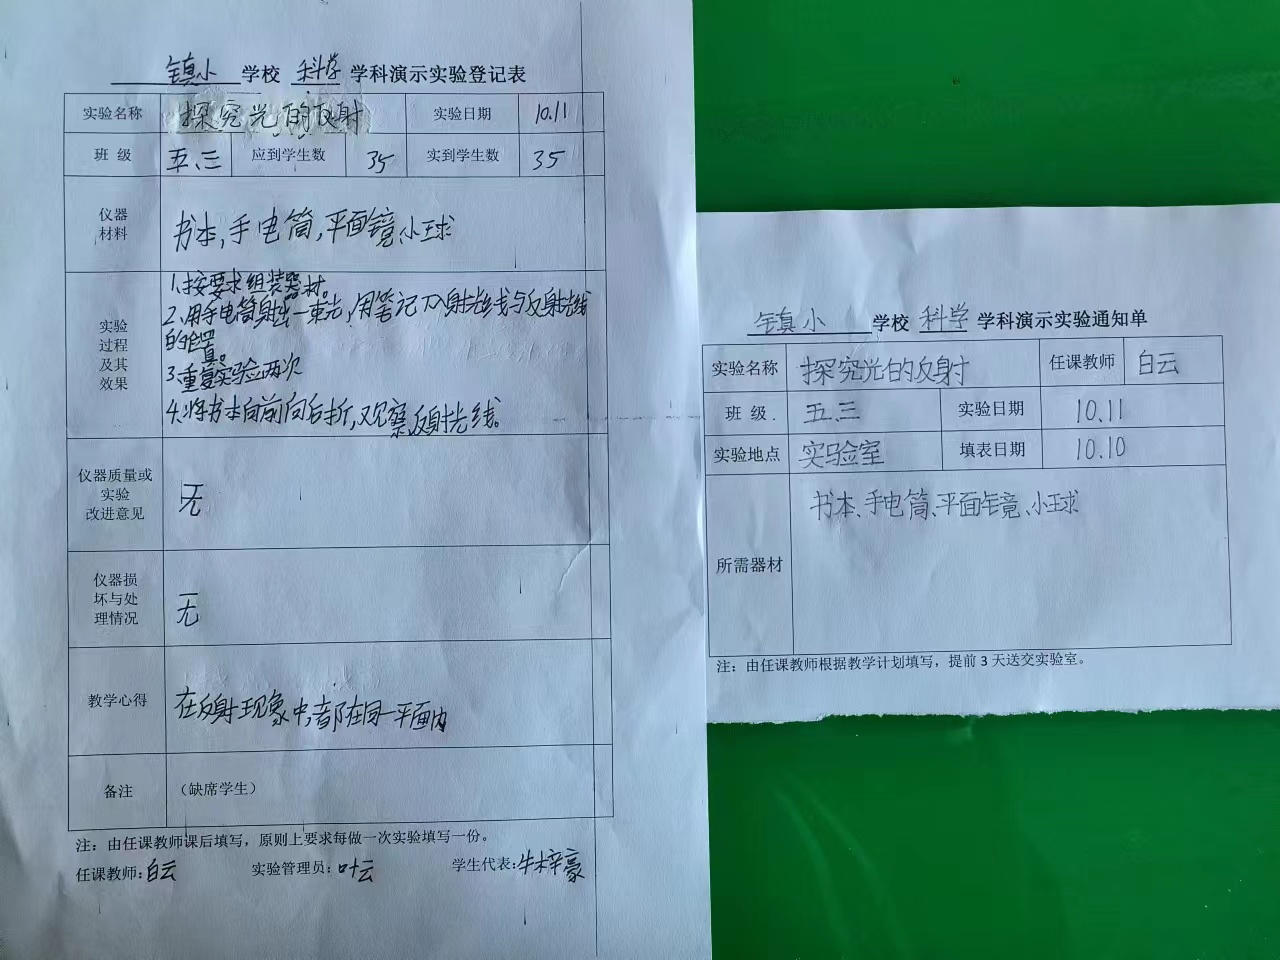 镇小 学校 科学 学科演示实验登记表
实验名称 探究光的反射 实验日期 10.11
班 级 五.三 应到学生数 35 实到学生数 35
仪器
材料
书本,手电筒,平面镜、小球
实验
过程
及其
效果
1.按要求组装器材。
2.用手电筒射出一束光,用笔记入射光线与反射光线
的位置。
3.重复实验两次
4.将书本向前向后折,观察反射光线。
仪器质量或
实验
改进意见
无
仪器损
坏与处
理情况
无
教学心得
在反射现象中,都在同一平面内
备注 (缺席学生)
注:由任课教师课后填写,原则上要求每做一次实验填写一份。
任课教师:白云 实验管理员:叶云 学生代表:牛梓豪
镇小 学校 科学 学科演示实验通知单
实验名称 探究光的反射 任课教师 白云
班 级. 五.三 实验日期 10.11
实验地点 实验室 填表日期 10.10
所需器材
书本、手电筒、平面镜、小球
注:由任课教师根据教学计划填写,提前 3 天送交实验室。